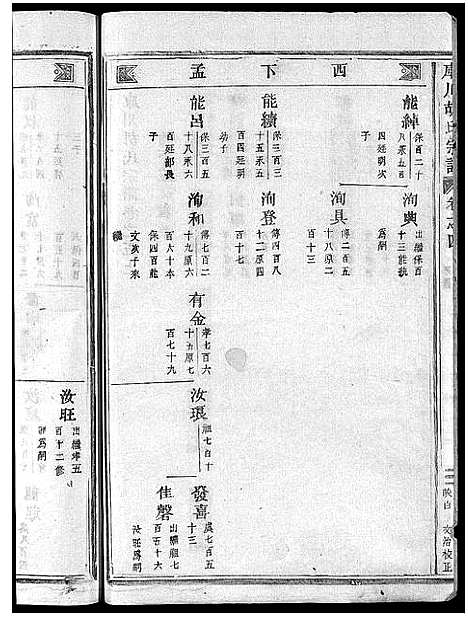 西下孟
能綽
保百二十
八承五百
四廷明次
洵典
出繼保百
十三能執
爲嗣
洵具
傳二百五
十八原二
百十三
能續
保三百三
十五承五
百四廷明
幼子
洵登
傳四百八
十二原四
百十七
能呂
保三百五
十八承六
百廷部長
子
洵和
傳七百二
十九原六
百六十本
保四百能
文次子來
繼
有金
孝七百六
十五原七
百七十九
汝琅
祖七百十
發喜
虞七百五
十三
佳磬
出繼祖七
百五十六
汝莊爲嗣
汝旺
出繼孝五
百十二修
爲嗣